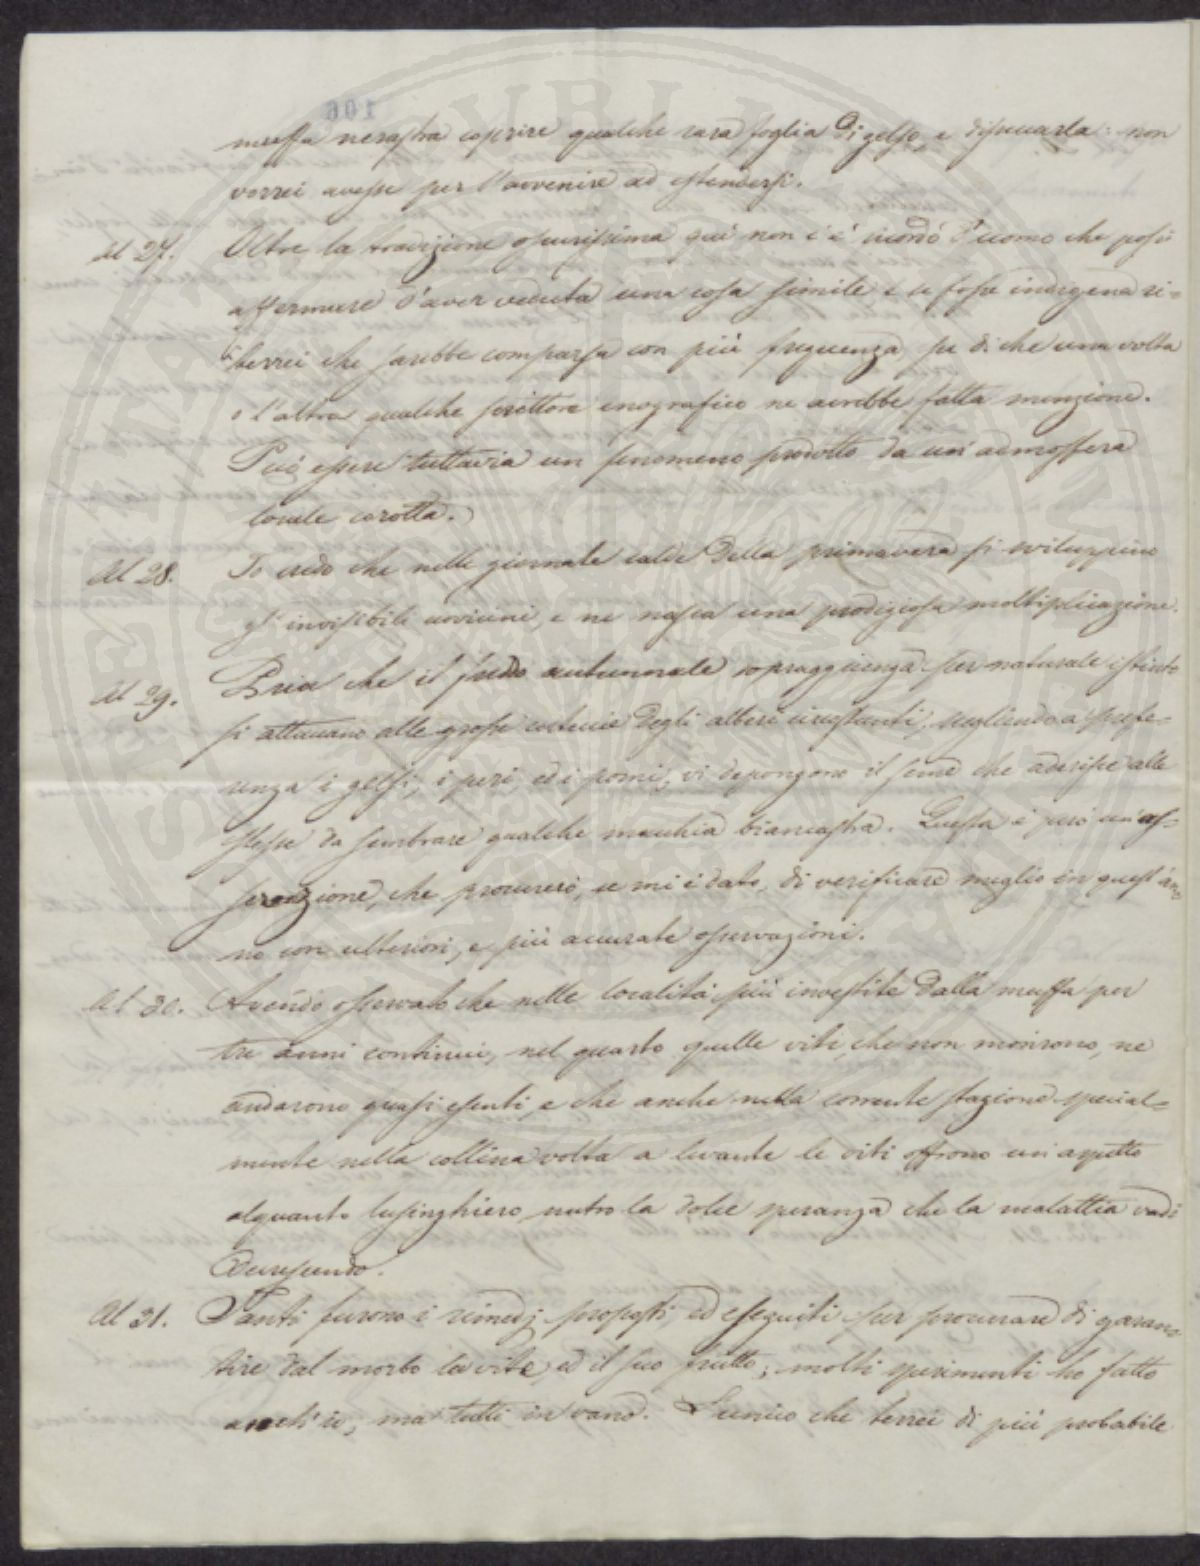 muffa nerastra coprire qualche rara foglia di gelso, e disseccarla: non
vorrei avesse per l'avvenire ad estendersi.
Al 27. Oltre la tradizione oscurissima quì non c'è ricordo d'uomo che possi
affermare d'aver veduta una cosa simile e se fosse indigena ri=
terrei che sarebbe comparsa con più frequenza, su di che una volta
o l'altra qualche scrittore enografico ne avrebbe fatta menzione.
Può essere tuttavia un fenomeno prodotto da un'admosfera
locale corotta.
Al 28. Io credo che nelle giornate calde della primavera si sviluppino
gl'invisibili uovicini, e ne nasca una prodigiosa moltiplicazione.
Al 29. Pria che il freddo autunnale sopraggiunga per naturale istinto
si attaccano alle grosse corteccie degli alberi circostanti, scegliendo a prefe=
renza i gelsi, i peri, ed i pomi, vi depongono il seme che aderisce alle
stesse da sembrare qualche macchia biancastra. Questa è però un'as=
serzione, che procurerò, se mi è dato, di verificare meglio in quest'an
no con ulteriori, e più accurate osservazioni.
Al 30. Avendo osservato che nelle località più investite dalla muffa per
tre anni continui, nel quarto quelle viti, che non morirono, ne
andarono quasi esenti, e che anche nella corrente stagione special=
mente nella collina volta a levante le viti offrono un'aspetto
alquanto lusinghiero, nutro la dolce speranza che la malattia vadi
decrescendo.
Al 31. Tanti furono i rimedj proposti, ed eseguiti per procurare di garan=
tire dal morbo la vite, ed il suo frutto; molti sperimenti ho fatto
anch'io, ma tutti in vano. L'unico che terrei di più probabile